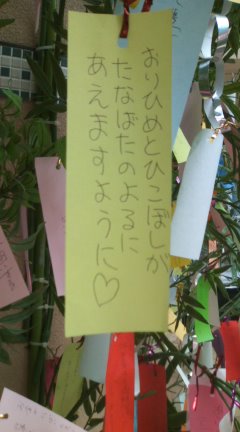 おりひめとひこぼしが
たなばたのよるに
あえますように♡